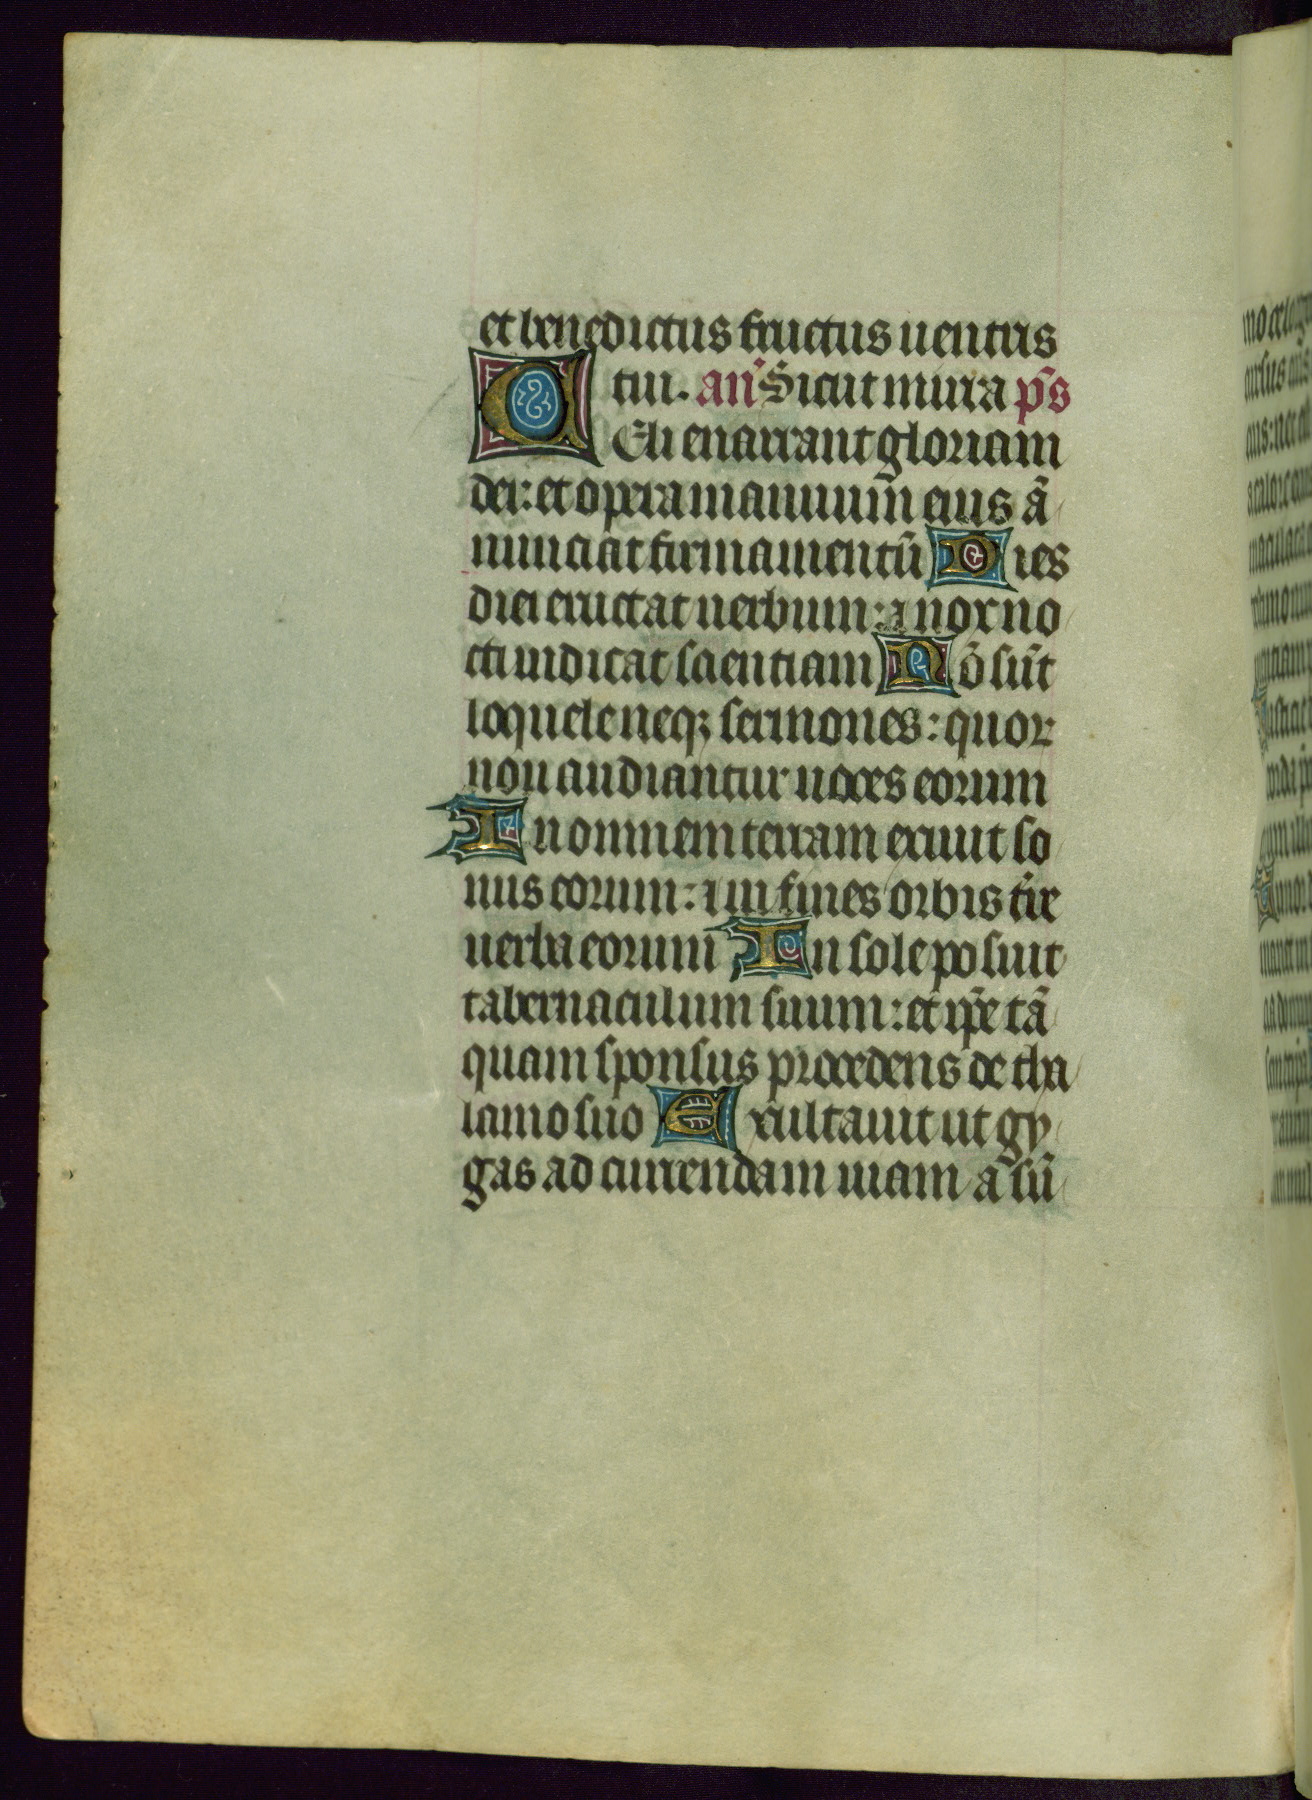 et benedictus fructus uentris
tui. an̄ Sicut mirra p̄s
Celi enarrant gloriam
dei: et opera manuum̄ eius ā
nunciat firmamentū Dies
diei eructat uerbum: ⁊ nox no
cti indicat scientiam Nō sūt
loquele neqꝫ sermones: quoꝝ
non audiantur uoces eorum
In omnem terram exiuit so
nus eorum: ⁊ in fines orbis t̄re
uerba eorum In sole posuit
tabernaculum suum: et ip̄e tā
quam sponsus procedens de tha
lamo suo Exultauit ut gy
gas ad currendam uiam a sū